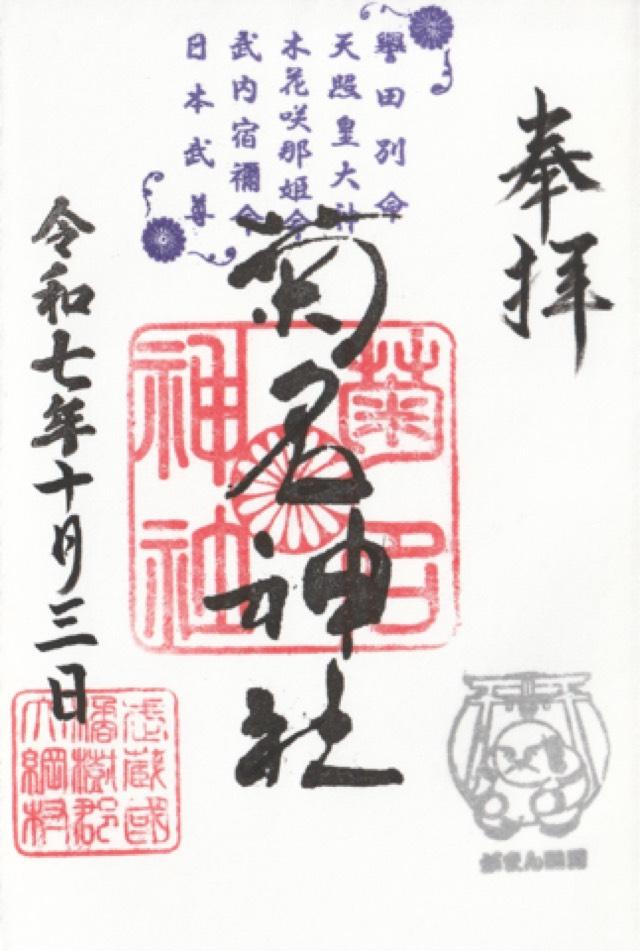 奉拝
譽田別命
天照皇大神
木花咲耶姫命
武内宿禰命
日本武尊
菊名神社
菊名
神社
令和七年十月三日
武蔵國
橘樹郡
大綱村
がまん様